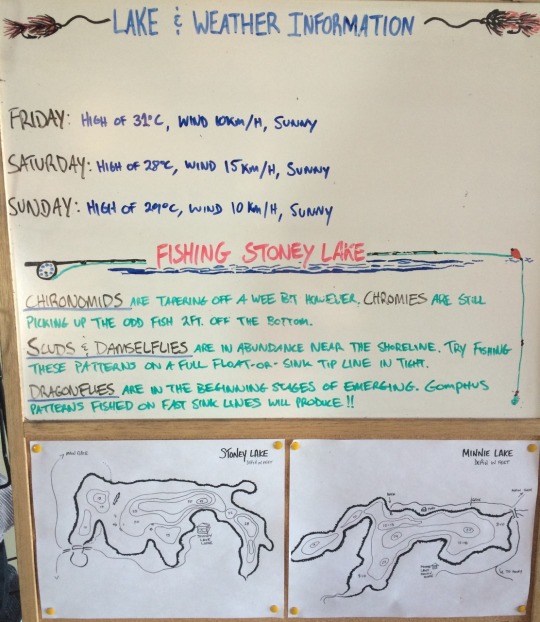 LAKE & WEATHER INFORMATION
FRIDAY: HIGH OF 31°C, WIND 10KM/H, SUNNY
SATURDAY: HIGH OF 28°C, WIND 15 KM/H, SUNNY
SUNDAY: HIGH OF 29°C, WIND 10 KM/H, SUNNY
FISHING STONEY LAKE
CHIRONOMIDS ARE TAPERING OFF A WEE BIT HOWEVER, CHROMIES ARE STILL
PICKING UP THE ODD FISH 2FT. OFF THE BOTTOM.
SCUDS & DAMSELFLIES ARE IN ABUNDANCE NEAR THE SHORELINE. TRY FISHING
THESE PATTERNS ON A FULL FLOAT-OR-SINK TIP LINE IN TIGHT.
DRAGONFLIES ARE IN THE BEGINNING STAGES OF EMERGING. GOMPHUS
PATTERNS FISHED ON FAST SINK LINES WILL PRODUCE!!
STONEY LAKE
DEPTH IN FEET
MINNIE LAKE
DEPTH IN FEET
STONEY
LAKE
LODGE